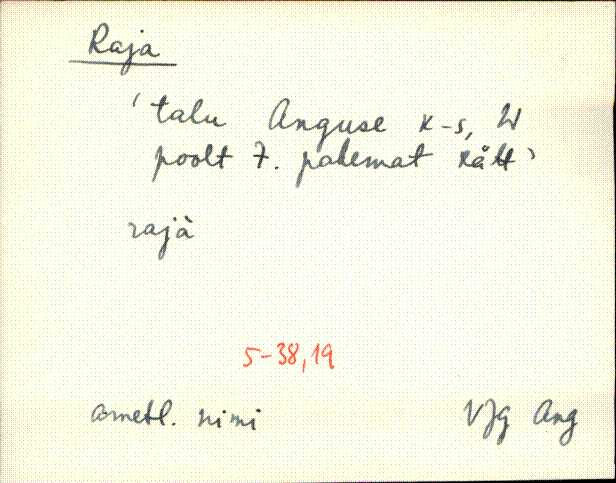 Raja
'talu Anguse k-s, W
poolt 7. pahemat kätt'
rajà
5-38,19
ametl. nimi VJg Ang